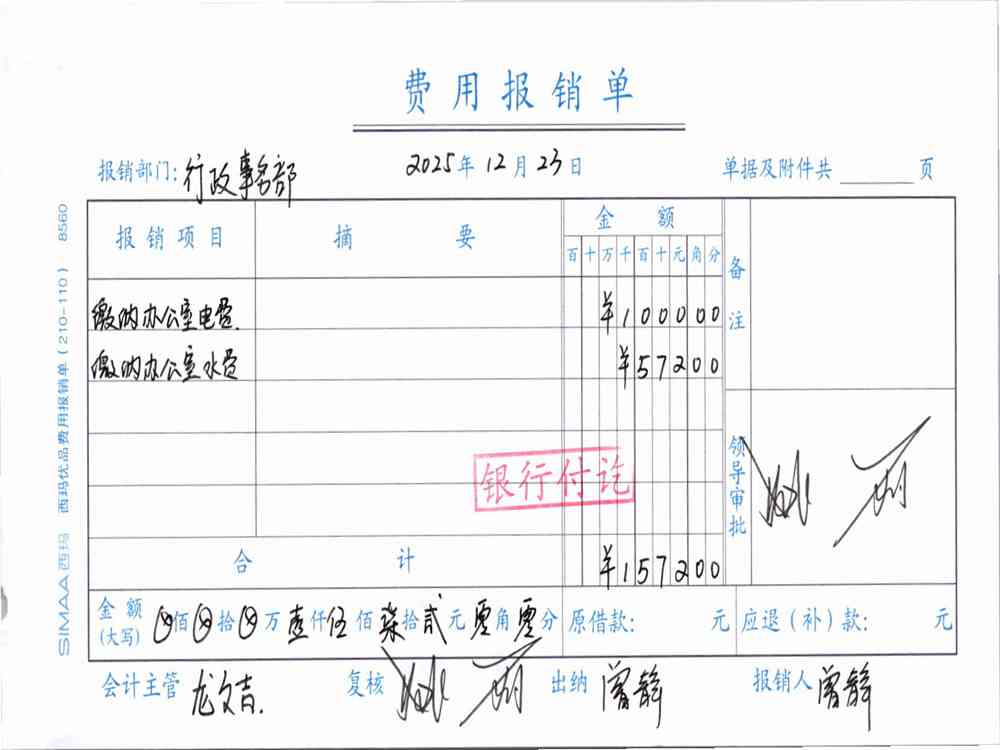 费用报销单
报销部门:行政事务部 2025年12月23日 单据及附件共 页
报销项目 摘要 金额 备注
百十万千百十元角分
缴纳办公室电费. ¥100000
缴纳办公室水费 ¥57200
银行付讫
领导审批
合计 ¥157200
金额(大写) 佰 拾 万壹仟伍佰柒拾贰元零角零分 原借款: 元 应退(补)款: 元
会计主管 龙文吉. 复核 出纳 曾静 报销人 曾静
SIMAA西玛 西玛优品费用报销单(210-110) 8560